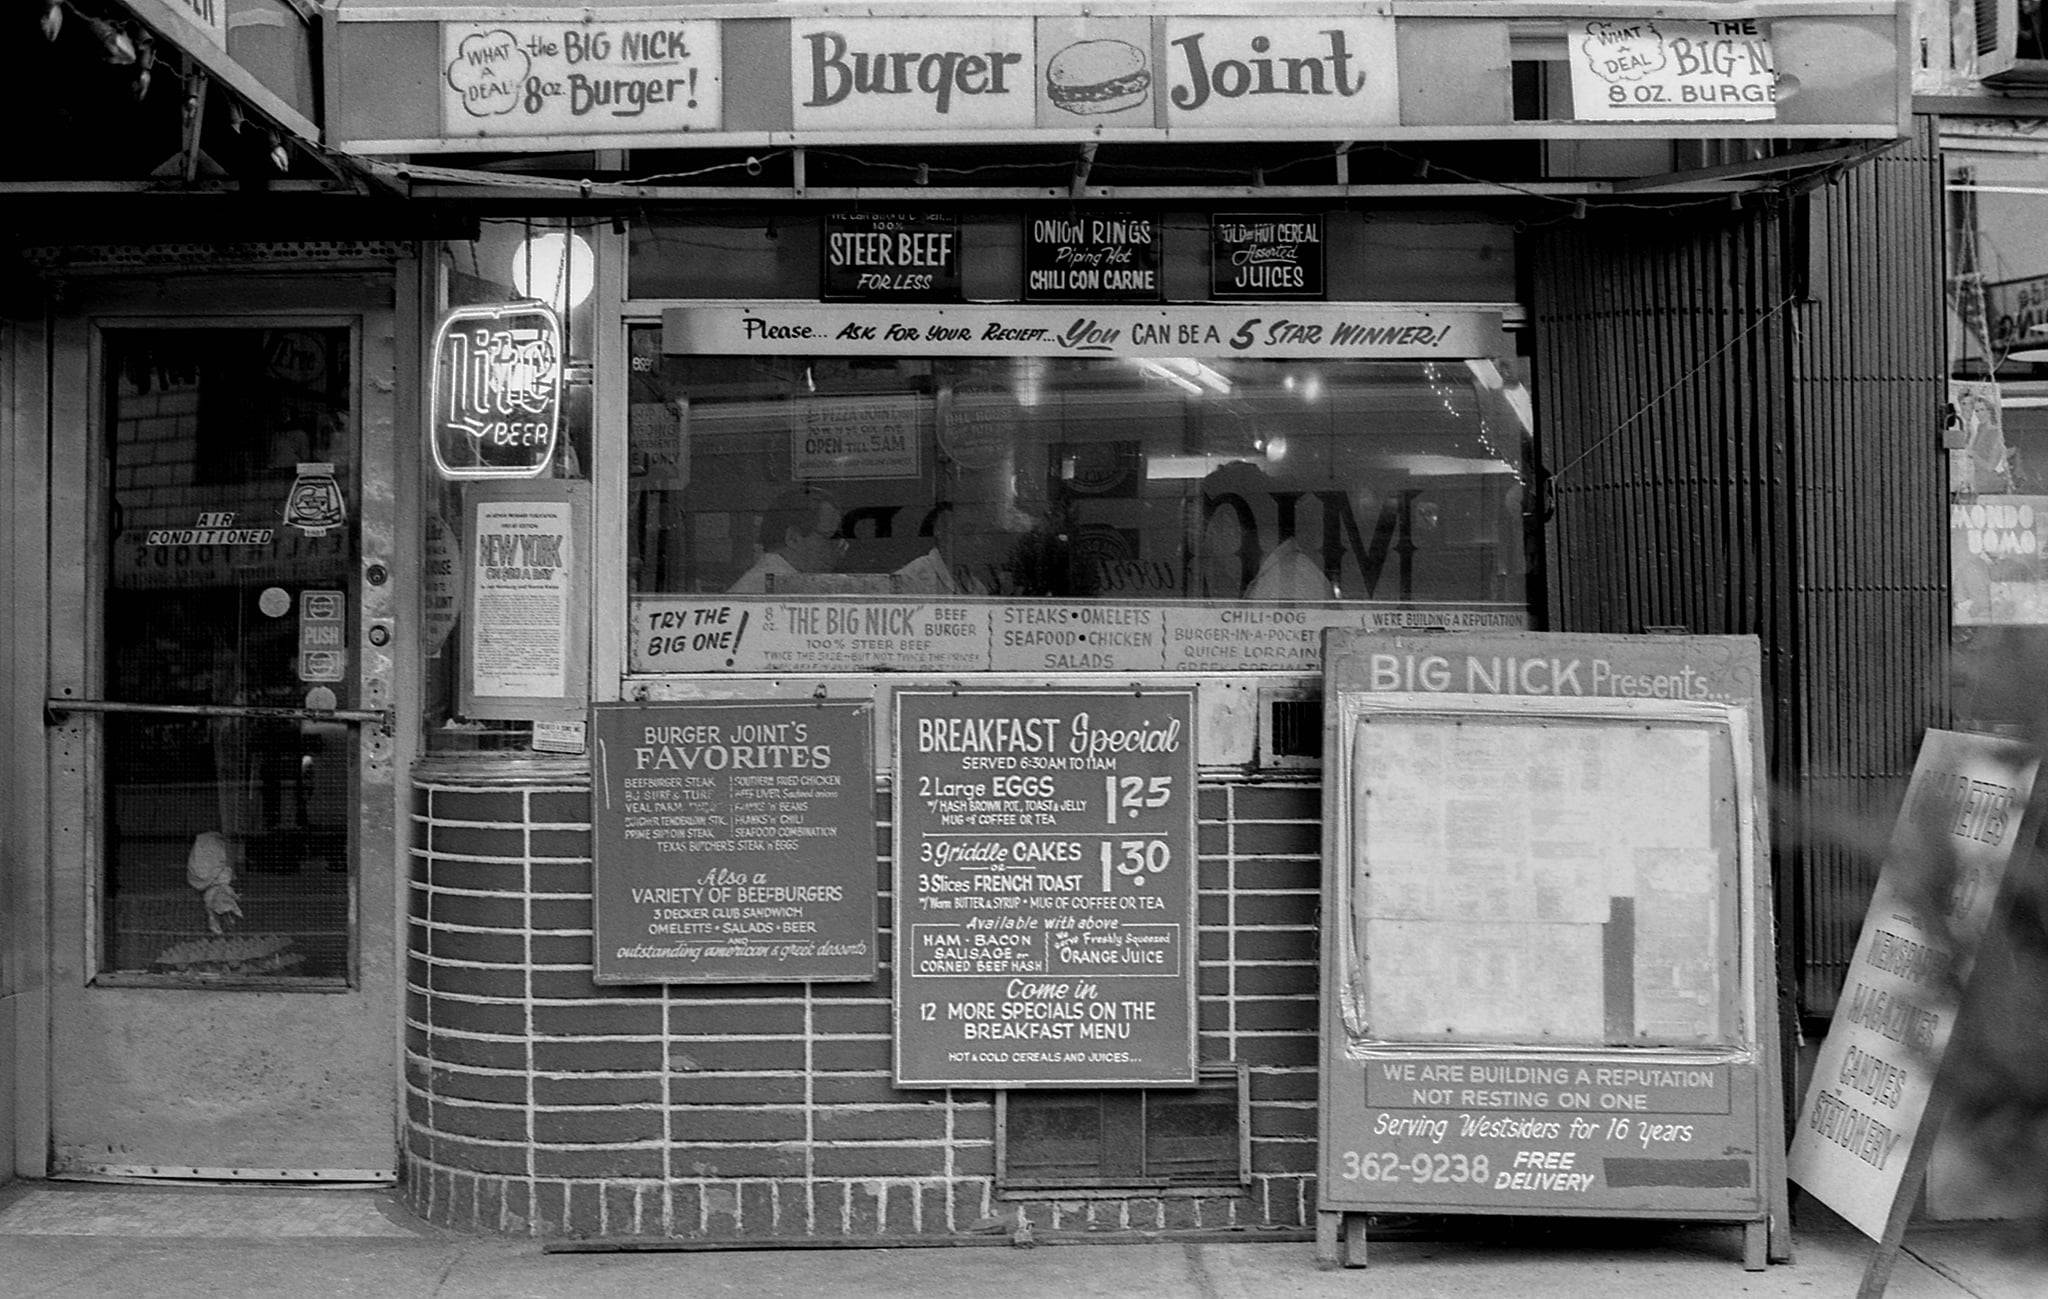 WHAT
A
DEAL
the BIG NICK
8oz. Burger!
Burger Joint
WHAT
A
DEAL
THE
BIG-N
8 OZ. BURGE
100%
STEER BEEF
FOR LESS
ONION RINGS
Piping Hot
CHILI CON CARNE
OLD or HOT CEREAL
Assorted
JUICES
Please... ASK FOR YOUR RECIEPT... YOU CAN BE A 5 STAR WINNER!
Lite
BEER
PIZZA JOINT
OPEN TILL 5AM
AIR
CONDITIONED
PUSH
NEW YORK
NICK
TRY THE
BIG ONE!
8 OZ. "THE BIG NICK" BEEF BURGER
100% STEER BEEF
TWICE THE SIZE-BUT NOT TWICE THE PRICE!
STEAKS • OMELETS
SEAFOOD • CHICKEN
SALADS
CHILI-DOG
BURGER-IN-A-POCKET
QUICHE LORRAIN
GREEK SPECIALT
WE'RE BUILDING A REPUTATION
BURGER JOINT'S
FAVORITES
BEEFBURGER STEAK
BJ SURF & TURF
VEAL PARM.
BUTCHER TENDERLOIN STK.
PRIME SIRLOIN STEAK
SOUTHERN FRIED CHICKEN
BEEF LIVER Sauteed onions
FRANKS 'n' BEANS
FRANKS 'n' CHILI
SEAFOOD COMBINATION
TEXAS BUTCHER'S STEAK 'n' EGGS
Also a
VARIETY OF BEEFBURGERS
3 DECKER CLUB SANDWICH
OMELETTS • SALADS • BEER
AND
outstanding american & greek desserts
BREAKFAST Special
SERVED 6:30AM TO 11AM
2 Large EGGS 1.25
w/ HASH BROWN POT., TOAST & JELLY
MUG of COFFEE OR TEA
3 griddle CAKES 1.30
OR
3 Slices FRENCH TOAST
w/ Warm BUTTER & SYRUP • MUG OF COFFEE OR TEA
Available with above
HAM • BACON
SAUSAGE or
CORNED BEEF HASH
We serve Freshly Squeezed
ORANGE JUICE
Come in
12 MORE SPECIALS ON THE
BREAKFAST MENU
HOT & COLD CEREALS AND JUICES...
BIG NICK Presents...
WE ARE BUILDING A REPUTATION
NOT RESTING ON ONE
Serving Westsiders for 16 years
362-9238 FREE
DELIVERY
MONDO
UOMO
MAGAZINES
CANDIES
STATIONERY